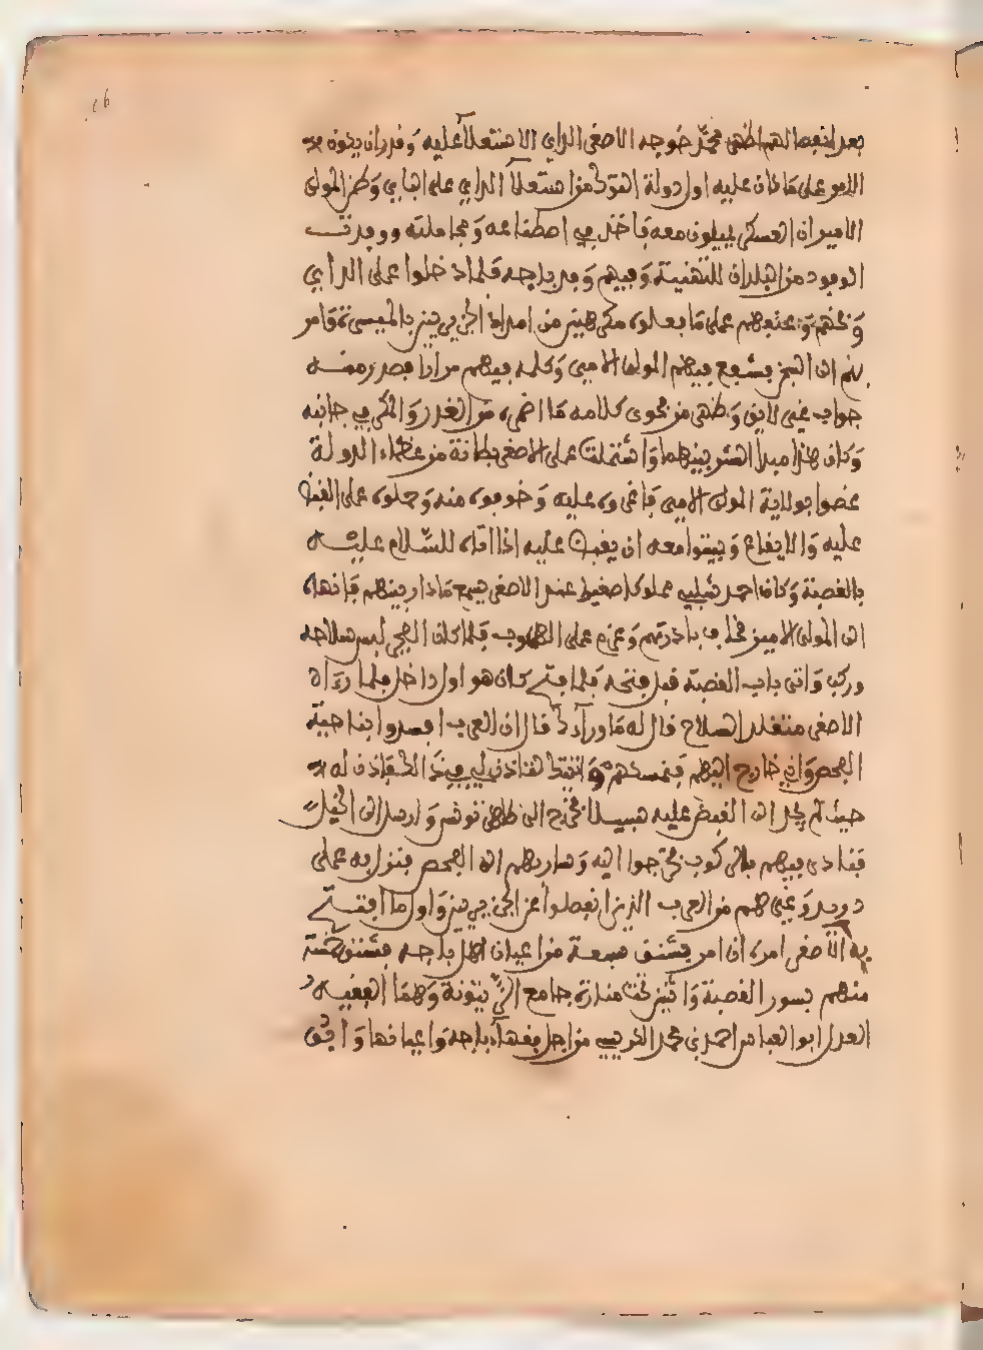 بعد انفصالهم اظهر محمد خوجه الاصغر الداي الاستعلاء عليه وقدر ان يكون
الامر على ما كان عليه اول دولة الترك من استعلاء الداي على الباي وظن المولى
الامير ان العسكر يميلون معه فاخذ في اصطناعه ومجاملته ووفدت
الوفود من البلدان للتهنية وفيهم وفد باجه فلما دخلوا على الداي
وبخهم وعنفهم على ما فعلوه مكرهين من امداد الجزيريين بالميرة وامر
فشفع فيهم المولى الامير وكلمه فيهم مرارا فصدر منه
جواب غير لايق وظهر من فحوى كلامه ما اضمره من الغدر والمكر في جانبه
وكان هذا مبدأ الشر بينهما واشتملت على الاصغر بطانة من عظماء الدولة
غصوا بولاية المولى الامير فاغروه عليه وخوفوه منه وحملوه على القبض
عليه والايقاع وبيتوا معه ان يقبض عليه اذا اتاه للسلام عليه
بالقصبة وكان احمد شلبي مملوكا صغيرا عند الاصغر فسمع ما دار بينهم فانهاه
الى المولى الامير فخاف بادرتهم وعزم على الهروب فلما كان الفجر لبس سلاحه
وركب واتى باب القصبة قبل فتحه فلما فتح كان هو اول داخل فلما رءاه
الاصغر متقلد السلاح قال له ما وراءك قال ان العرب افسدوا بناحية
الفحص واني خارج اليهم
حيث لم يجد الى القبض عليه سبيلا فخرج الى ظاهر تونس وارسل الى الخيل
فنادى فيهم بالركوب فخرجوا اليه وسار بهم الى الفحص فنزل به على
دريد وغيرهم من العرب الذين انفصلوا عن الجزيريين واول ما افتتح
به الاصغر امره ان امر بشنق سبعة من اعيان اهل باجه فشنق خمسة
منهم بسور القصبة واثنين تحت منارة جامع الزيتونة وهما الفقيه
العدل ابو العباس احمد بن محمد من اجل فقهاء باجه واعيانها